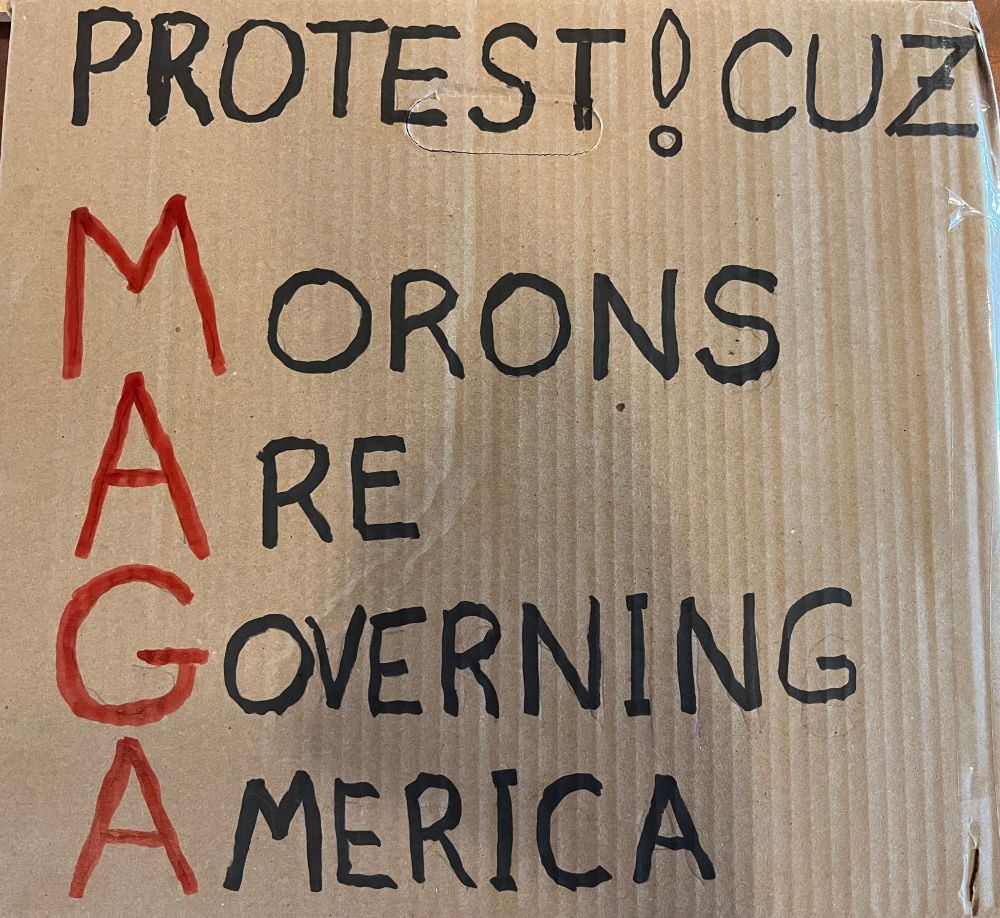 PROTEST! CUZ
MORONS
ARE
GOVERNING
AMERICA